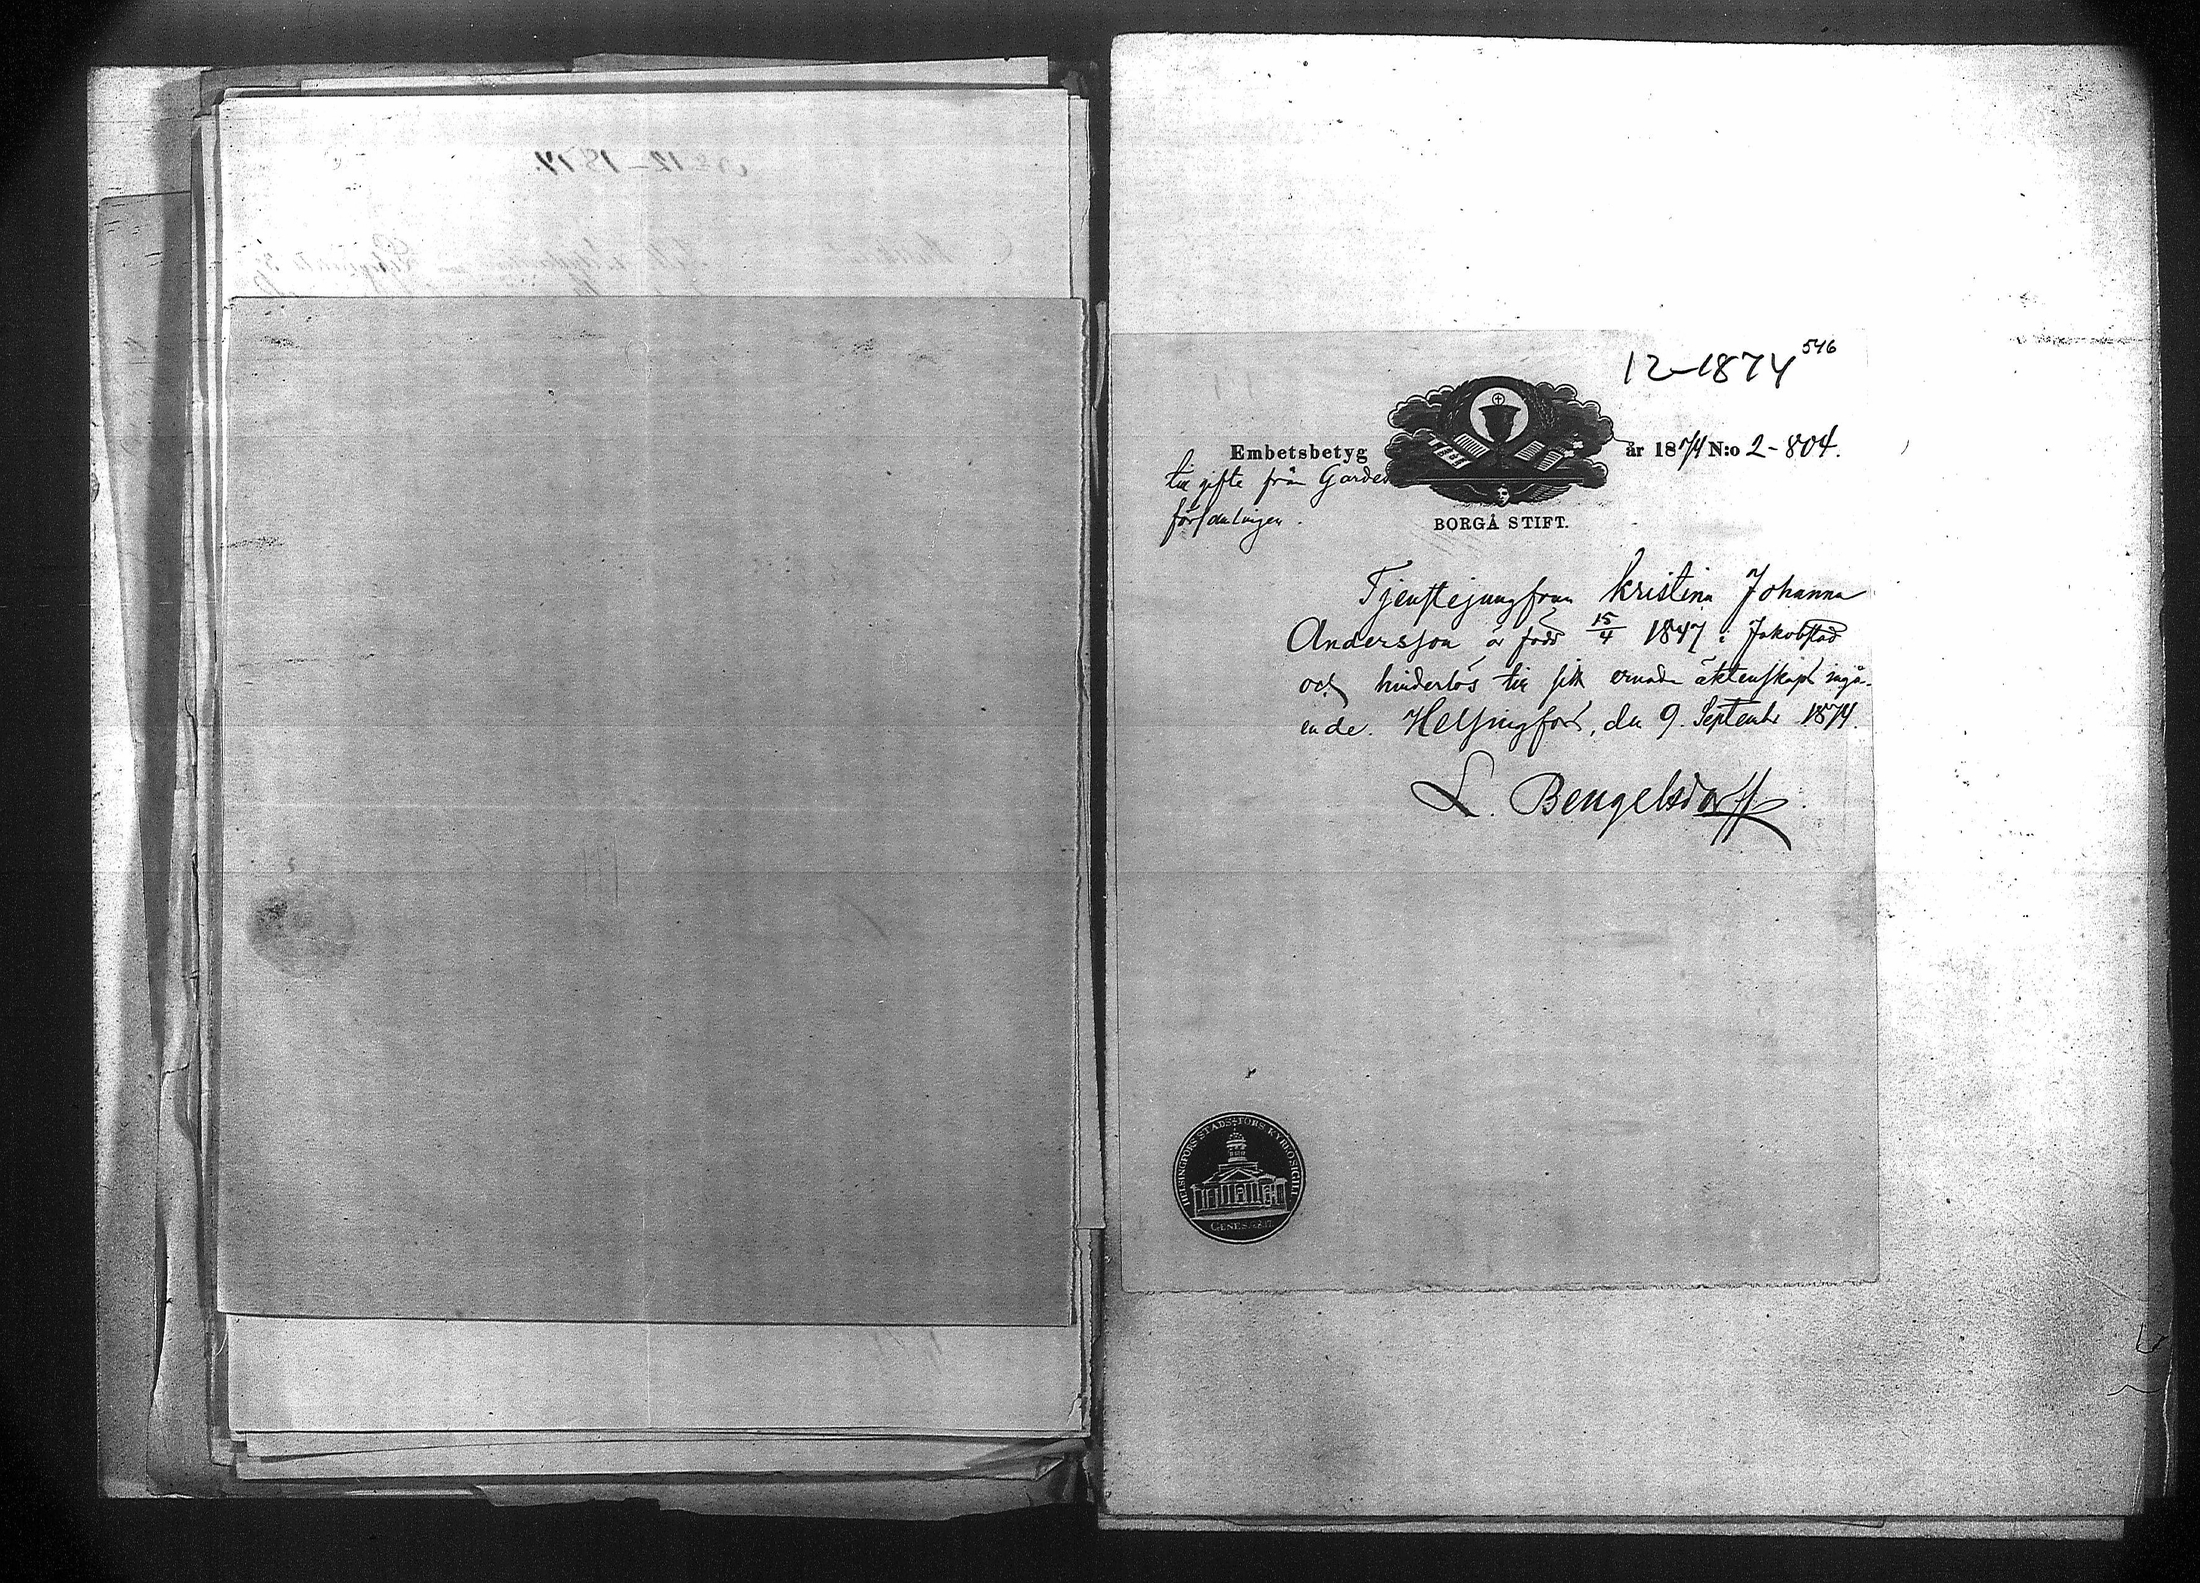 12-1874 546
Embetsbetyg år 1874 N:o 2-804.
till gifte från Gardes
församlingen.
BORGÅ STIFT.
Tjenstejungfrun Kristina Johanna
Andersson är född 15/4 1847 i Jakobstad
och hinderlös till sitt ernade äktenskaps ingå-
ende. Helsingfors, den 9. Septembr 1874.
L. Bengelsdorff
HELSINGFORS STADSFÖRS. KYRKO SIGILL
GENES. 28.17.